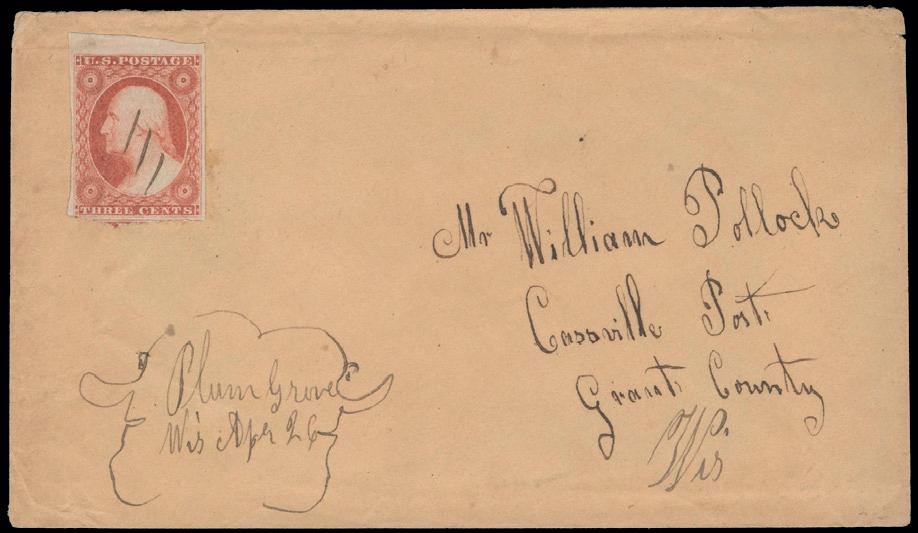 U.S. POSTAGE
THREE CENTS
Mr William Pollock
Cassville Post
Grant County
Wis
Plum Grove
Wis Apr 26